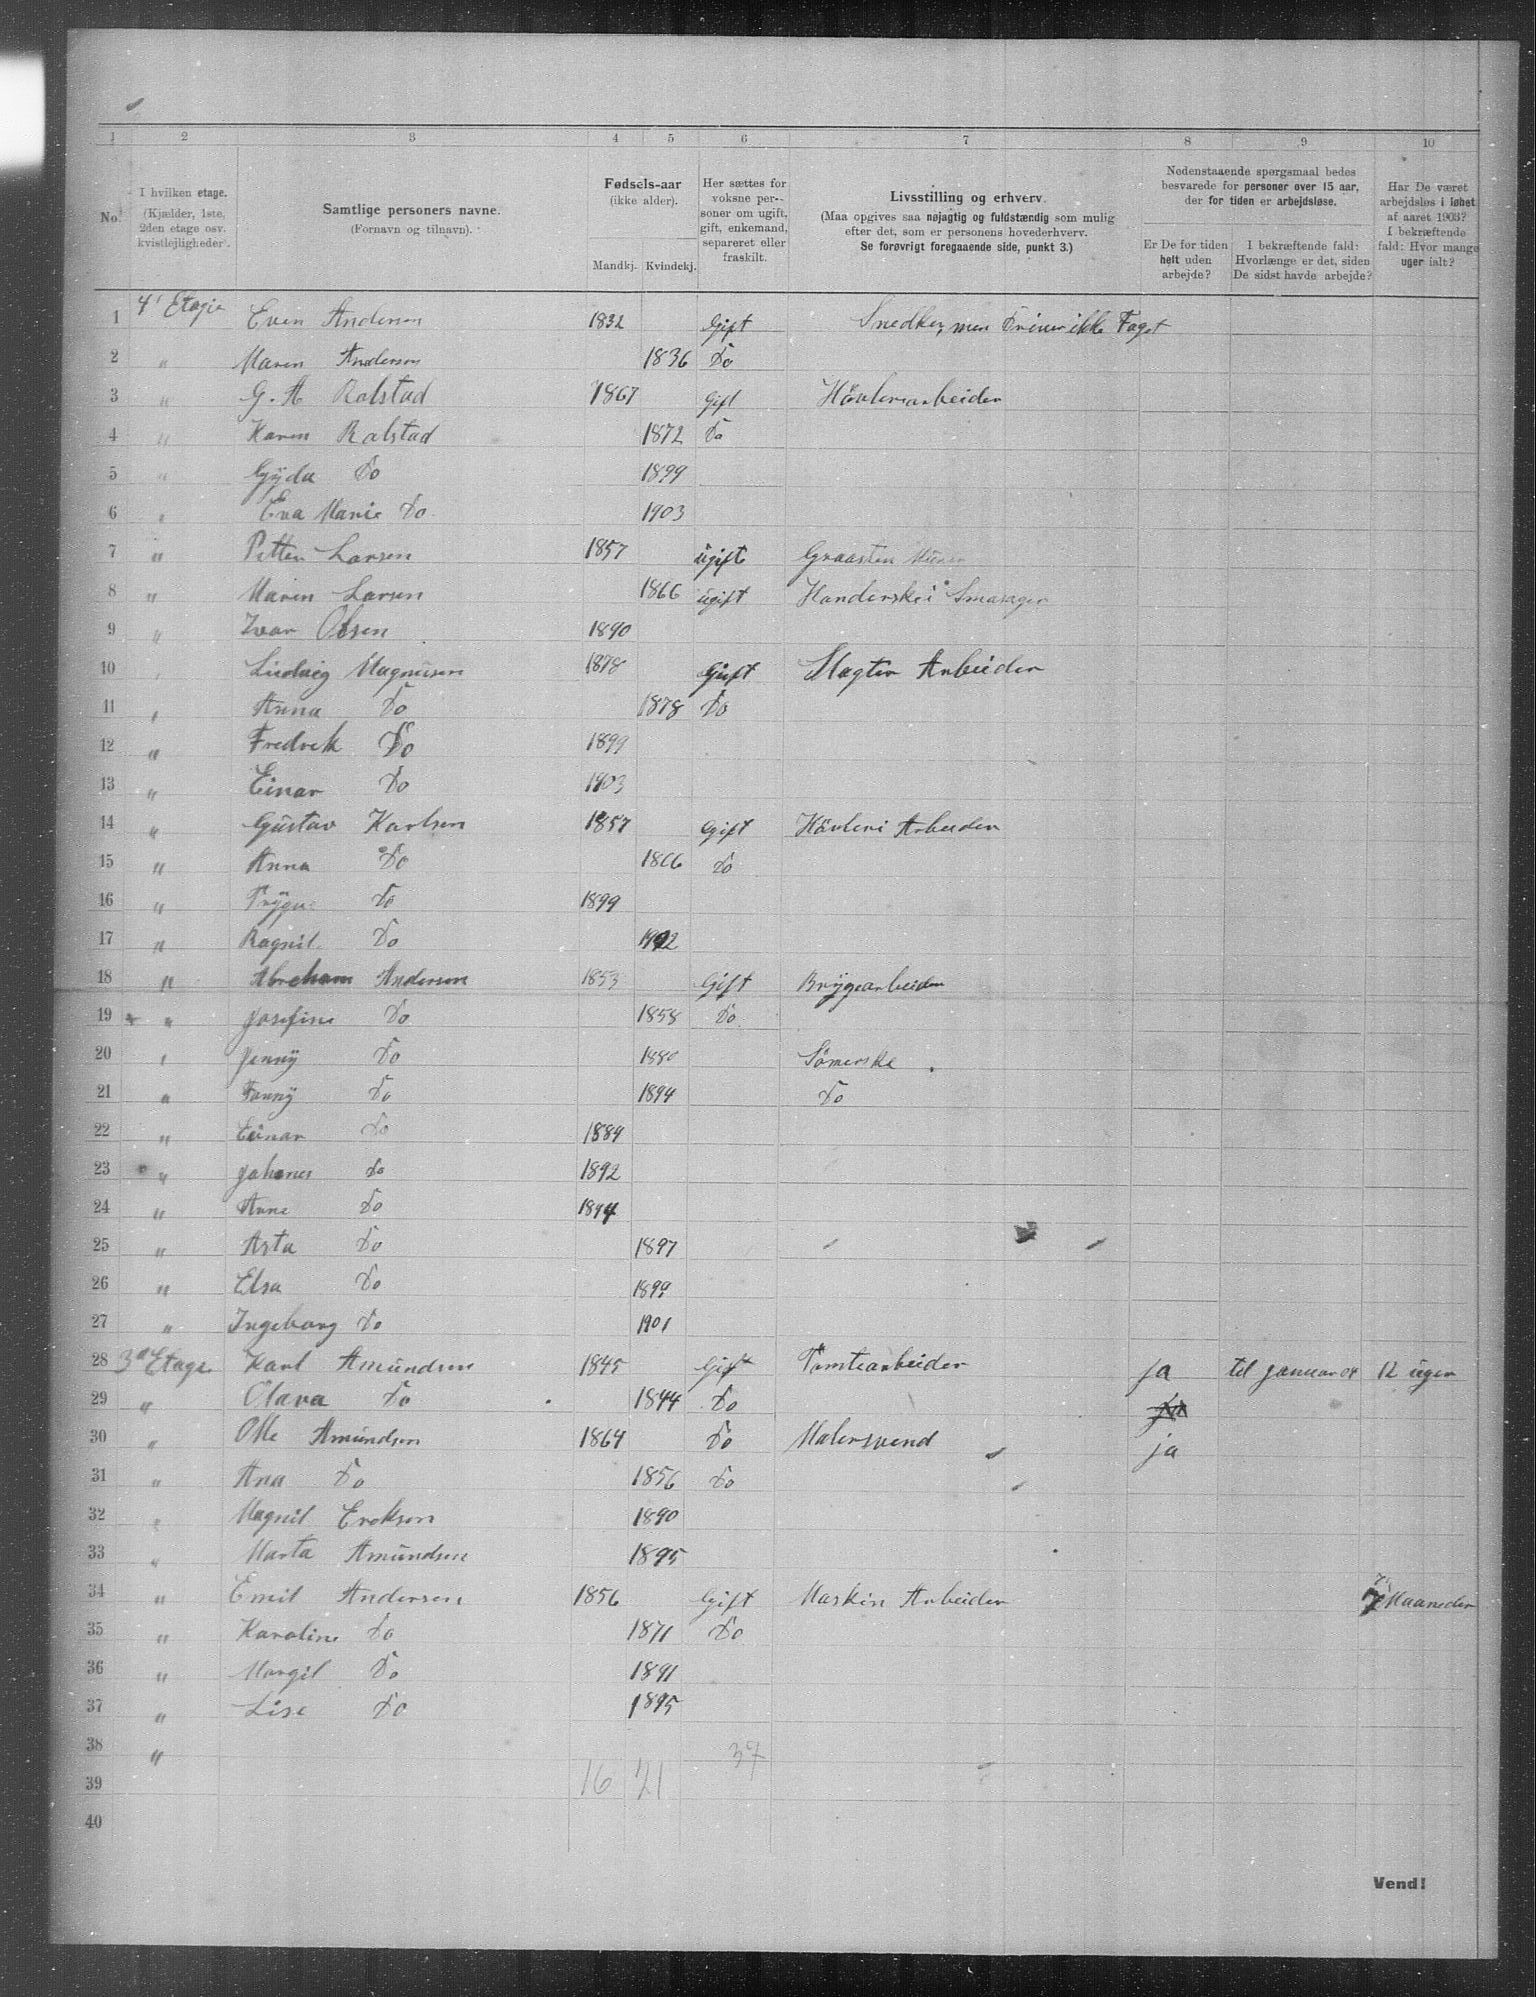 1 2 3 4 5 6 7 8 9 10
No.
I hvilken etage. (Kjælder, 1ste, 2den etage osv. kvistlejligheder).
Samtlige personers navne. (Fornavn og tilnavn).
Fødsels-aar (ikke alder).
Mandkj. Kvindekj.
Her sættes for voksne personer om ugift, gift, enkemand, separeret eller fraskilt.
Livsstilling og erhverv. (Maa opgives saa nøjagtig og fuldstændig som mulig efter det, som er personens hovederhverv. Se forøvrigt foregaaende side, punkt 3.)
Nedenstaaende spørgsmaal bedes besvarede for personer over 15 aar, der for tiden er arbejdsløse.
Er De for tiden helt uden arbejde?
I bekræftende fald: Hvorlænge er det, siden De sidst havde arbejde?
Har De været arbejdsløs i løbet af aaret 1903? I bekræftende fald: Hvor mange uger ialt?
1 4' Etagie Even Andersen 1832 Gift Snedker, men Driver ikke Faget
2 " Maren Andersen 1836 Do
3 " G. A Rolstad 1867 Gift Hövleriarbeider
4 " Karen Rolstad 1872 Do
5 " Gÿda Do 1899
6 " Eva Marie Do 1903
7 " Petter Larsen 1857 ugift Graasten Murer
8 " Maren Larsen 1866 ugift Handerske
9 " Ivar Olsen 1890
10 " Ludvig Magnusen 1878 Gift Slagter Arbeider
11 " Anna Do 1878 Do
12 " Fredrek Do 1899
13 " Einar Do 1903
14 " Gustav Karlsen 1857 Gift Hövleri Arbeider
15 " Anna Do 1866 Do
16 " Trÿgve Do 1899
17 " Ragnil Do 1902
18 " Abreham Andersen 1853 Gift Brÿgearbeider
19 " Josefine Do 1858 Do
20 " Jennÿ Do 1880 Sömerske
21 " Fannÿ Do 1894 Do
22 " Einar Do 1889
23 " Johanes Do 1892
24 " Arne Do 1894
25 " Asta Do 1897
26 " Elsa Do 1899
27 " Ingeborg Do 1901
28 3d Etage Karl Amundsen 1845 Gift Tomtearbeider ja til januar 04 12 uger
29 " Olava Do 1844 Do
30 " Olle Amundsen 1864 Do Malersvend ja
31 " Ana Do 1856 Do
32 " Magnil Ereksen 1890
33 " Marta Amundsen 1895
34 " Emil Andersen 1856 Gift Maskin Arbeider 7 Maaneder
35 " Karoline Do 1871 Do
36 " Margit Do 1891
37 " Lise Do 1895
38 " 37
39 16 21
40
Vend!